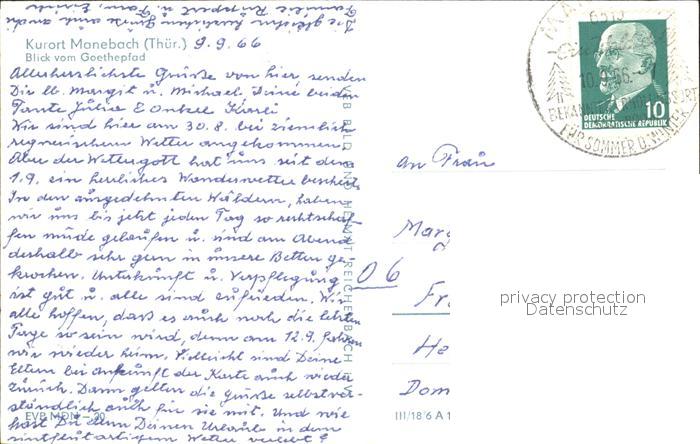 Kurort Manebach (Thür.) 9.9.66
Blick vom Goethepfad
Allerherzlichste Grüsse von hier senden
Dir lb. Margit u. Michael Deine beiden
Tante Julia & Onkel Karli
Wir sind hier am 30.8. bei ziemlich
regnerischem Wetter angekommen.
Aber der Wettergott hat uns seit dem
1.9. ein herrliches Wanderwetter beschert.
In den ausgedehnten Wäldern, haben
wir uns bis jetzt jeden Tag so rechtschaf-
fen müde gelaufen u. sind am Abend
deshalb sehr gern in unsere Betten ge-
krochen. Unterkunft u. Verpflegung
ist gut u. alle sind zufrieden. Wir
alle hoffen, dass es auch noch die letzten
Tage so sein wird, denn am 12.9. fahren
wir wieder heim. Vielleicht sind Deine
Eltern bei Ankunft der Karte auch wieder
zurück. Dann gelten die Grüße selbstver-
ständlich auch für sie mit. Und wie
hast Du denn Deinen Urlaub in dem
sintflutartigem Wetter verlebt?
Die gleichen herzlichen Grüße auch
Familie u. Fam.
EVP MDN -.20
REICHENBACH
An Frau
Marg
06
Fr.
He
Dom
III/18 6 A 1
10
DEUTSCHE
DEMOKRATISCHE REPUBLIK
FÜR SOMMER U. WINTER
privacy protection
Datenschutz